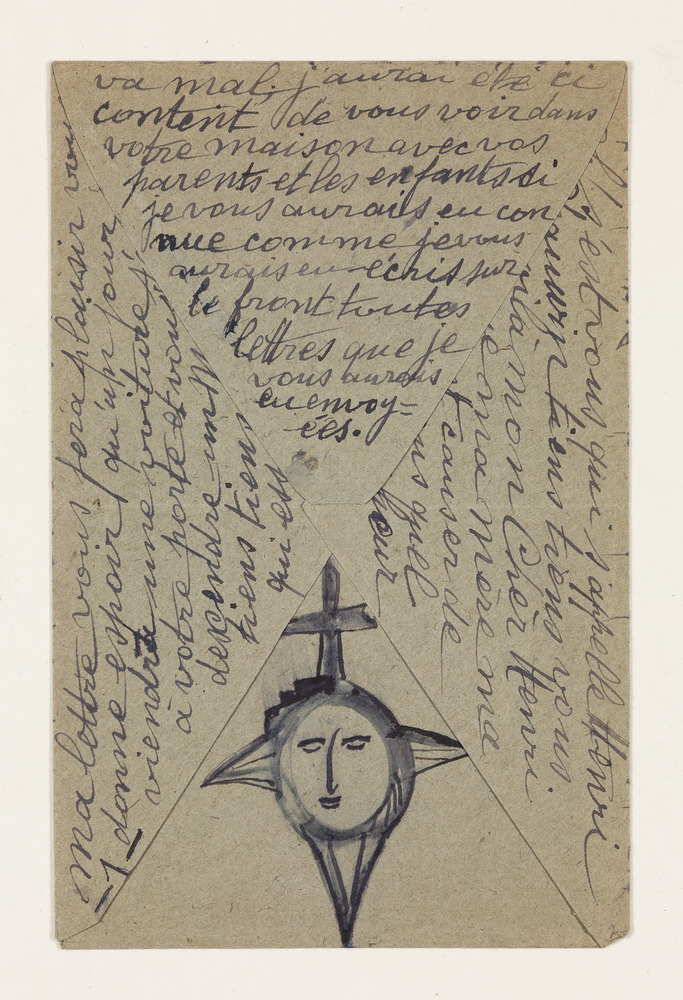 va mal. j'aurai été ici
content de vous voir dans
votre maison avec vos
parents et les enfants si
je vous aurais eu con
nue comme je vous
aurais eu écris sur
le front toutes
lettres que je
vous aurais
eu envoy=
ées.
ma lettre vous fera plaisir vous
-1- donne espoir qu'un jour
viendra une voiture
à votre porte et vous
descendre un M
tiens tiens
qui est
c'est vous qui s'appelle Henri
tiens tiens vous
mon Cher Henri
ma mère ma
causer de
quel